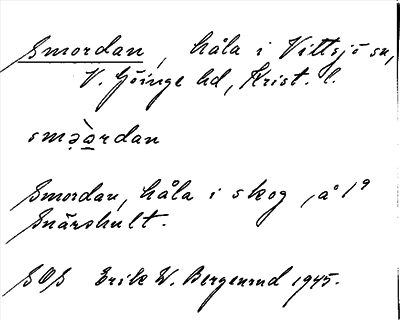 Smordan, håla i Vittsjö sn,
V. Göinge hd, Krist. l.
Smordan, håla i skog, å 1⁹
Snärshult.
SOS Erik W. Bergenrud 1945.